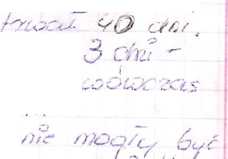 trwał 40 dni.
3 dni -
wówczas
...
nie mogły być